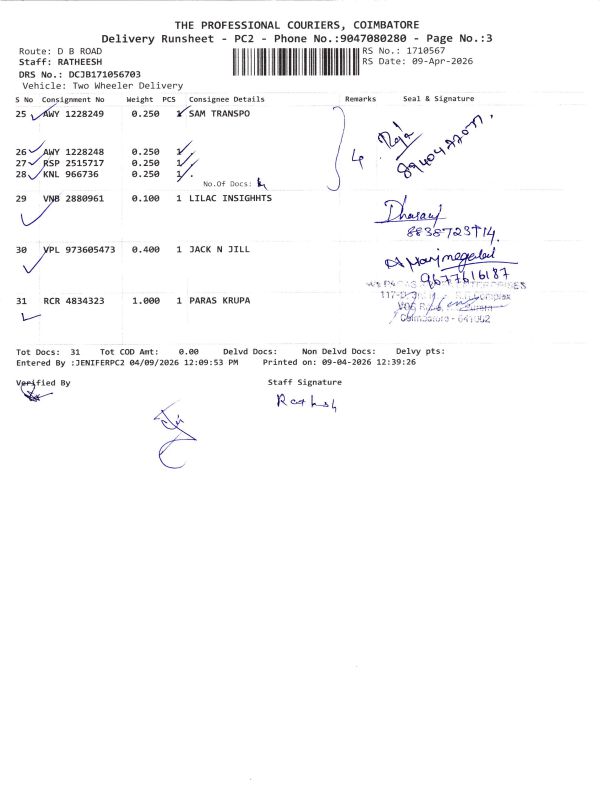 THE PROFESSIONAL COURIERS, COIMBATORE
Delivery Runsheet - PC2 - Phone No.:9047080280 - Page No.:3
Route: D B ROAD
RS No.: 1710567
Staff: RATHEESH
RS Date: 09-Apr-2026
DRS No.: DCJB171056703
Vehicle: Two Wheeler Delivery
S No Consignment No Weight PCS Consignee Details Remarks Seal & Signature
25 AWY 1228249 0.250 1 SAM TRANSPO
Raja
26 AWY 1228248 0.250 1 .
27 RSP 2515717 0.250 1 .
28 KNL 966736 0.250 1 .
No.Of Docs: 4
4
29 VNB 2880961 0.100 1 LILAC INSIGHHTS
8838723714.
30 VPL 973605473 0.400 1 JACK N JILL
9677616187
31 RCR 4834323 1.000 1 PARAS KRUPA
Coimbatore - 641002
Tot Docs: 31 Tot COD Amt: 0.00 Delvd Docs: Non Delvd Docs: Delvy pts:
Entered By :JENIFERPC2 04/09/2026 12:09:53 PM Printed on: 09-04-2026 12:39:26
Verified By Staff Signature